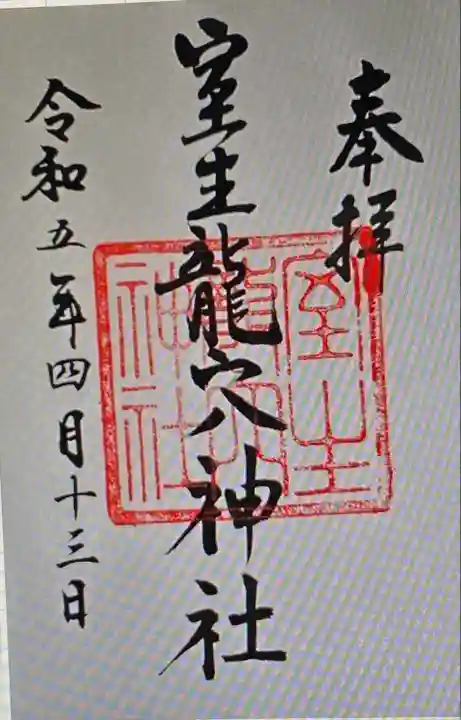 奉拝
室生龍穴神社
室生龍穴神社
令和五年四月十三日